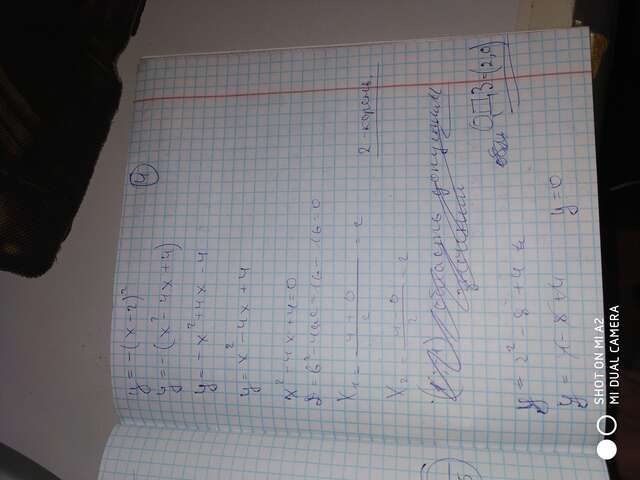 y = -(x-2)²
4
y = -(x²-4x+4)
y = -x²+4x-4
y = x²-4x+4
x²-4x+4=0
D = b²-4ac = 16-16=0
x₁ = (4+0)/2 = 2
2 - корень.
x₂ = (4-0)/2 = 2
область допустим
значений
ОДЗ = (2,0)
y = 2²-8+4
y = 4-8+4 y=0
SHOT ON MI A2
MI DUAL CAMERA